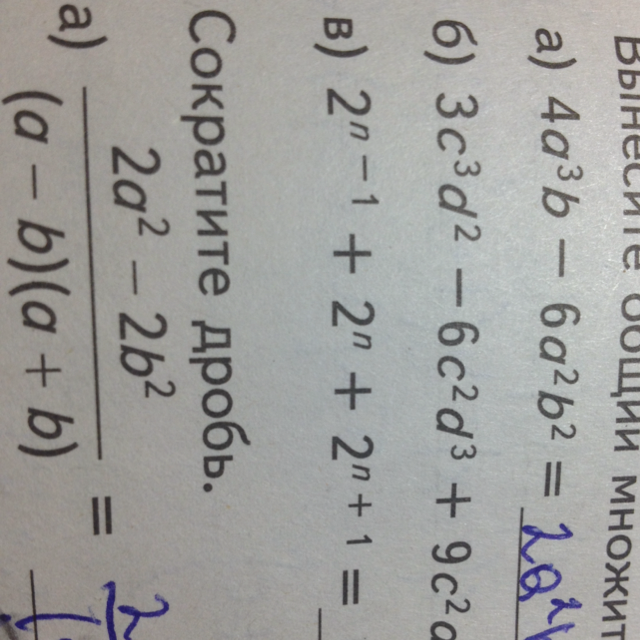 Вынесите общий
а) 4a³b − 6a²b² =
б) 3c³d² − 6c²d³ + 9c²
в) 2ⁿ⁻¹ + 2ⁿ + 2ⁿ⁺¹ =
Сократите дробь.
а) 2a² − 2b²
(a − b)(a + b) =